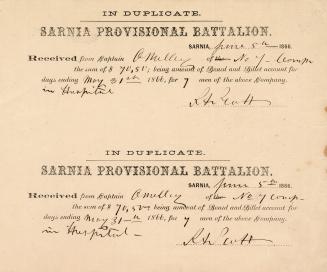 IN DUPLICATE.
SARNIA PROVISIONAL BATTALION.
SARNIA, June 5th 1866.
Received from Captain O'Malley of No 7 Comp
the sum of $ 70,50; being amount of Board and Billet account for
days ending May 31st 1866, for 7 men of the above Company.
in Hospital
Scott
IN DUPLICATE.
SARNIA PROVISIONAL BATTALION.
SARNIA, June 5th 1866.
Received from Captain O'Malley of No 7 Comp
the sum of $ 70,50 being amount of Board and Billet account for
days ending May 31st 1866, for 7 men of the above Company.
in Hospital
Scott